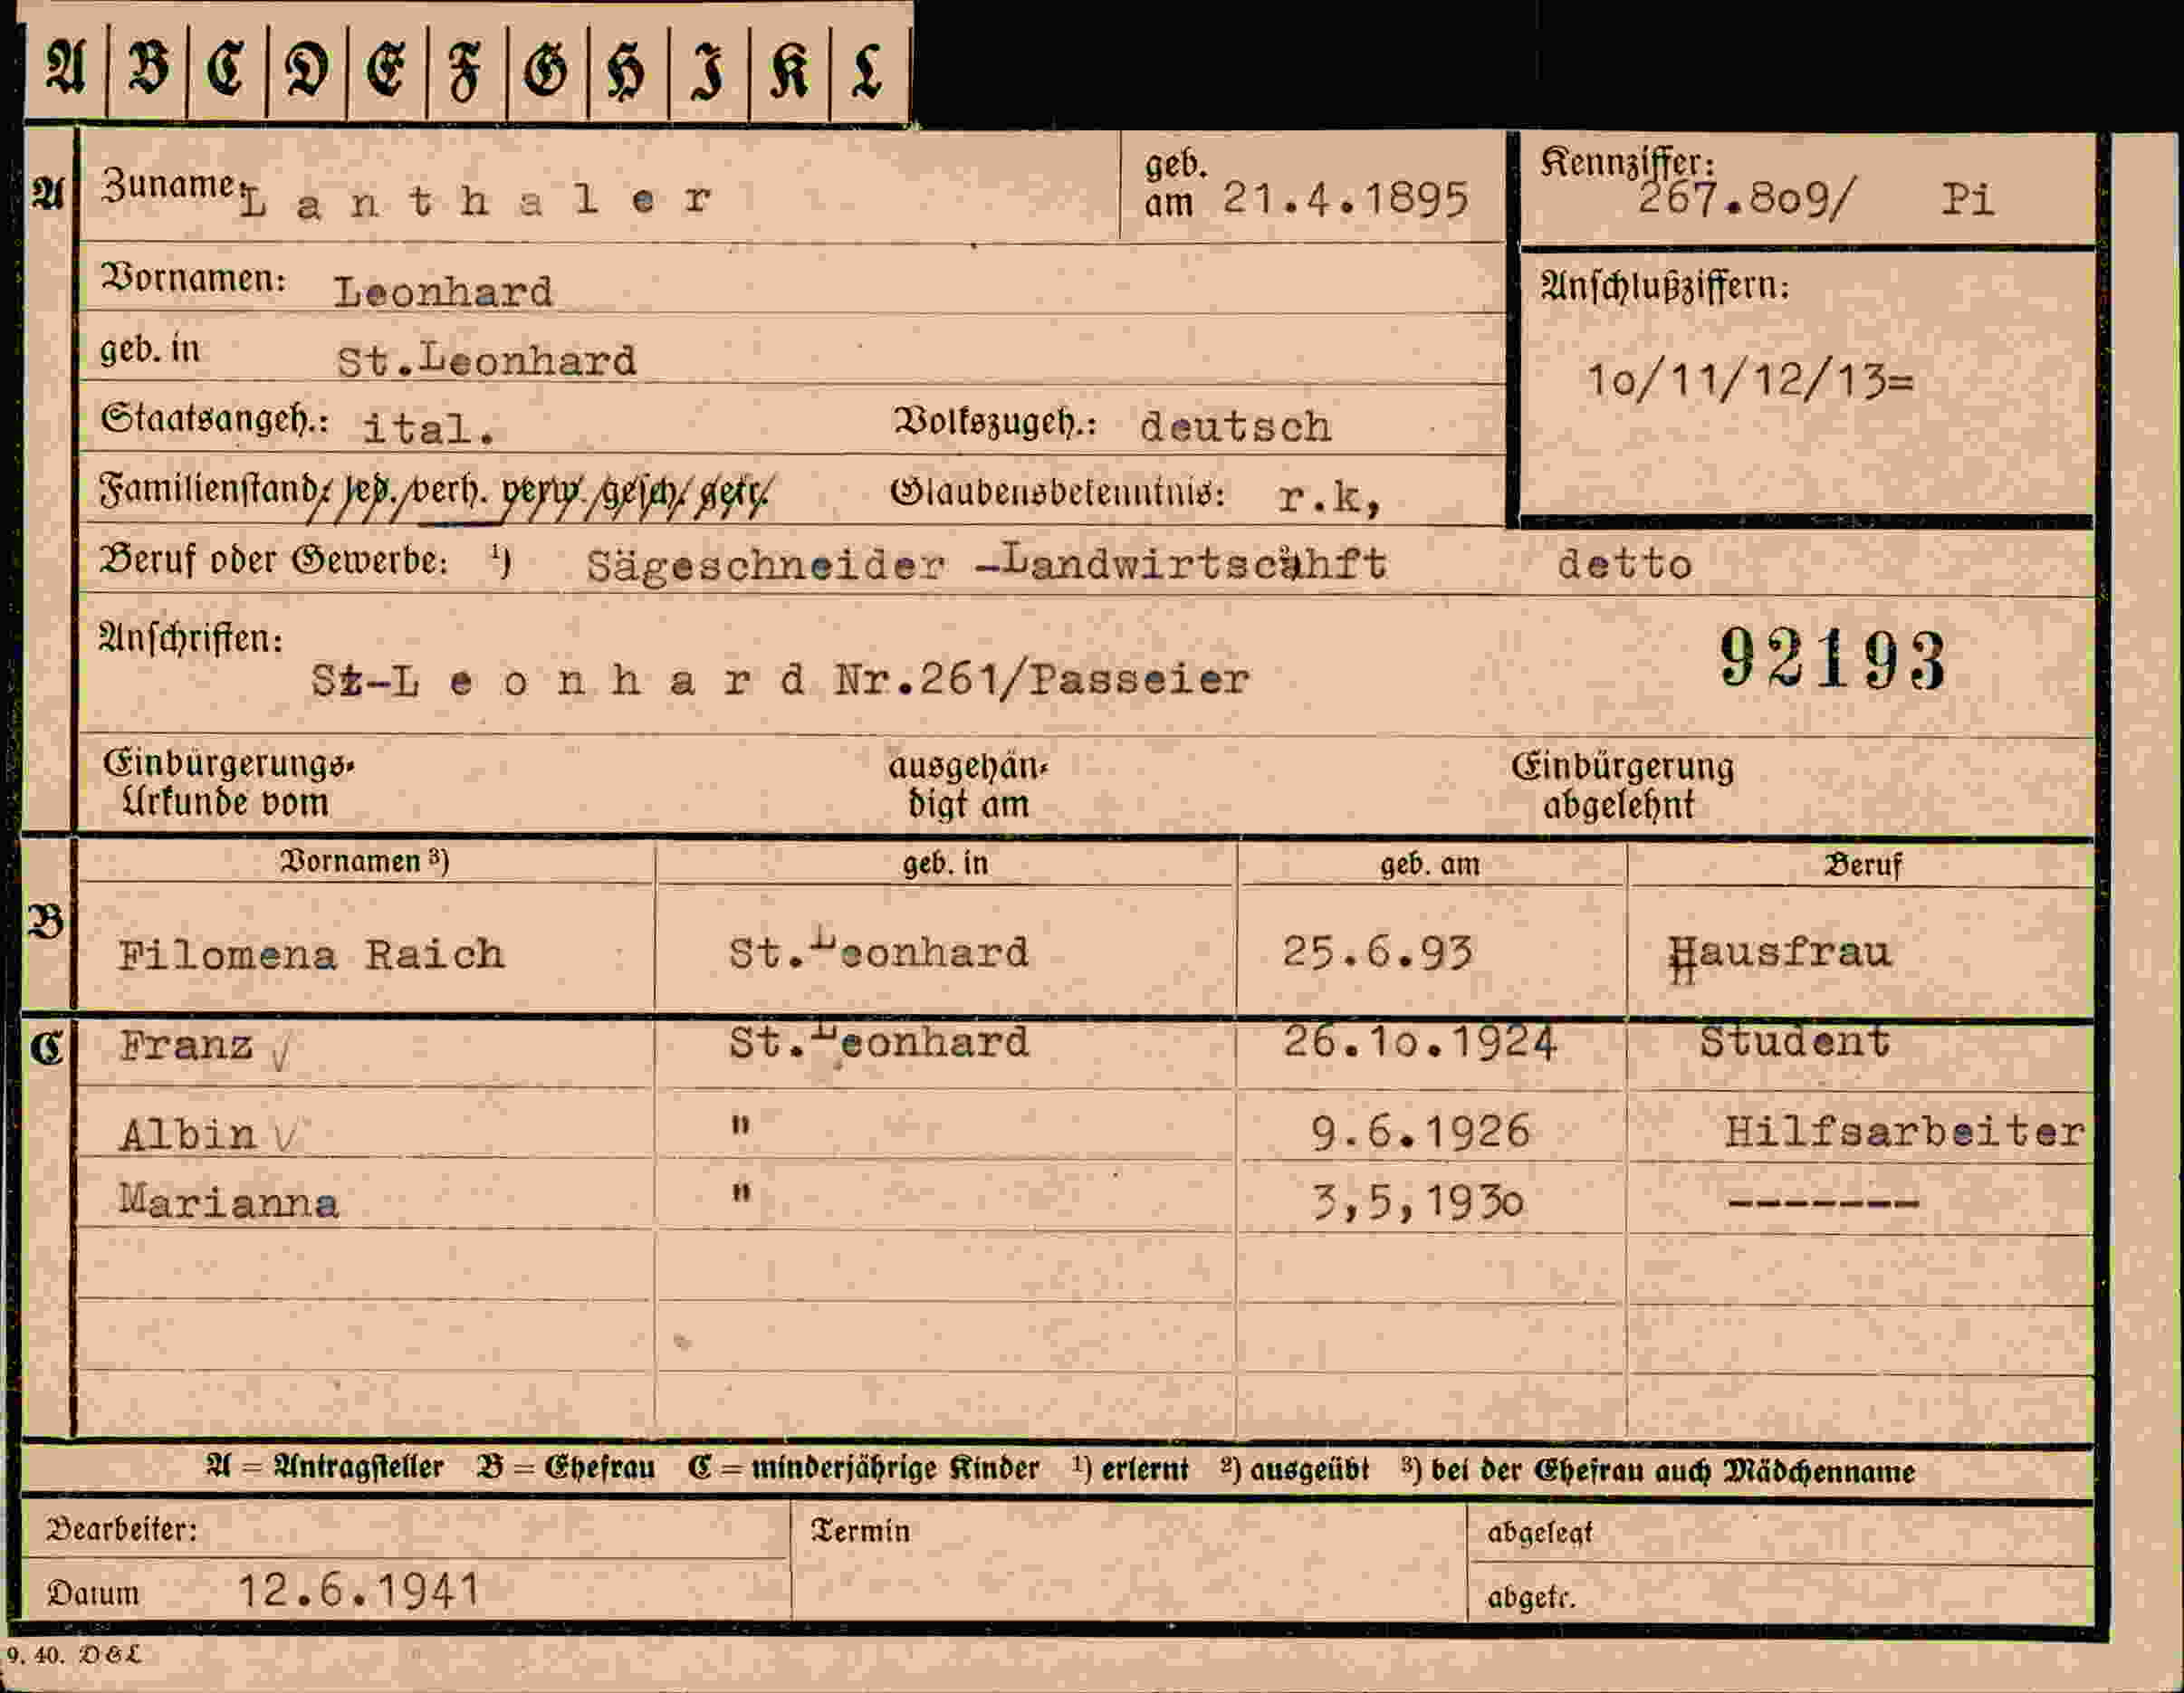 A B C D E F G H I K L
A Zuname: Lanthaler geb. am 21.4.1895 Kennziffer: 267.8o9/ Pi
Vornamen: Leonhard Anschlußziffern:
geb. in St.Leonhard 1o/11/12/13=
Staatsangeh.: ital. Volkszugeh.: deutsch
Familienstand: led. verh. verw. gesch. getr. Glaubensbekenntnis: r.k,
Beruf oder Gewerbe: ¹) Sägeschneider -Landwirtscahft detto
Anschriften: 92193
St-L e o n h a r d Nr.261/Passeier
Einbürgerungs- ausgehän- Einbürgerung
Urkunde vom digt am abgelehnt
Vornamen ³) geb. in geb. am Beruf
B Filomena Raich St.Leonhard 25.6.93 Hausfrau
C Franz √ St.Leonhard 26.1o.1924 Student
Albin √ " 9.6.1926 Hilfsarbeiter
Marianna " 3,5,193o -------
A = Antragsteller B = Ehefrau C = minderjährige Kinder ¹) erlernt ²) ausgeübt ³) bei der Ehefrau auch Mädchenname
Bearbeiter: Termin abgelegt
Datum 12.6.1941 abgetr.
9. 40. D & L